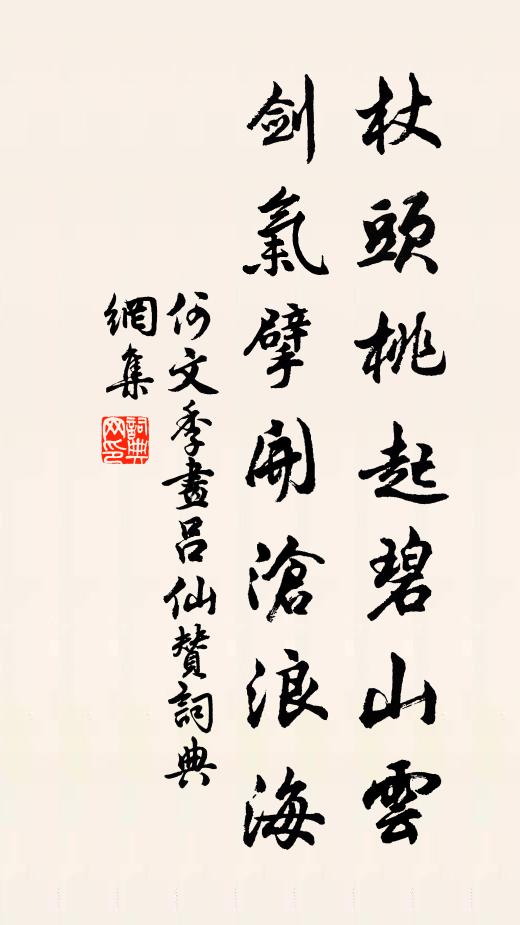 杖頭桃起碧山雲
劍氣擘開滄浪海
何文季畫呂仙贊詞典
網集
詞典網印